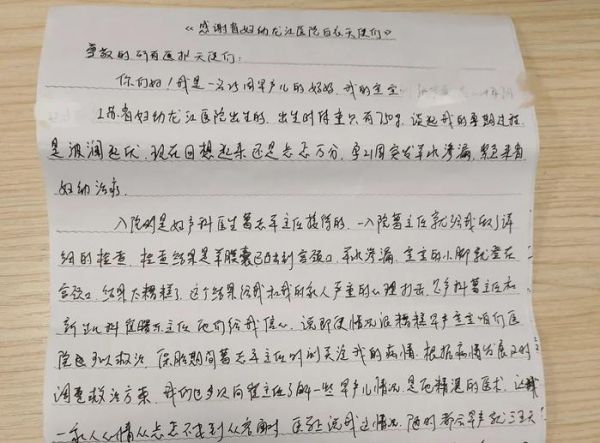 《感谢省妇幼龙江医院白衣天使们》
尊敬的所有医护天使们：
你们好！我是一名25周早产儿的妈妈，我的宝宝
省妇幼龙江医院出生的，出生时体重只有750g，说起我的孕期过程
是波澜起伏，现在回想起来还是忐忑万分，孕21周突发羊水渗漏，来省
妇幼治疗。
入院时是妇产科医生葛志平主任接待的，一入院葛主任就给我做了详
细的检查，检查结果是羊膜囊已凸出到宫颈口，羊水渗漏，宝宝的小脚就登在
宫颈口，结果太糟糕了，这个结果给我和我的家人严重的心理打击，妇产科葛主任和
新生儿科崔曙东主任他们给我信心，说即使情况很糟糕早产宝宝咱们医
院也可以救治，保胎期间葛志平主任时刻关注我的病情，根据病情发展及时
调整救治方案，我们也多次问崔主任了解一些早产儿情况，是他精湛的医术，让我
一家人心情从忐忑不安到从容面对，医生说我这情况，随时都会早产就三五天！